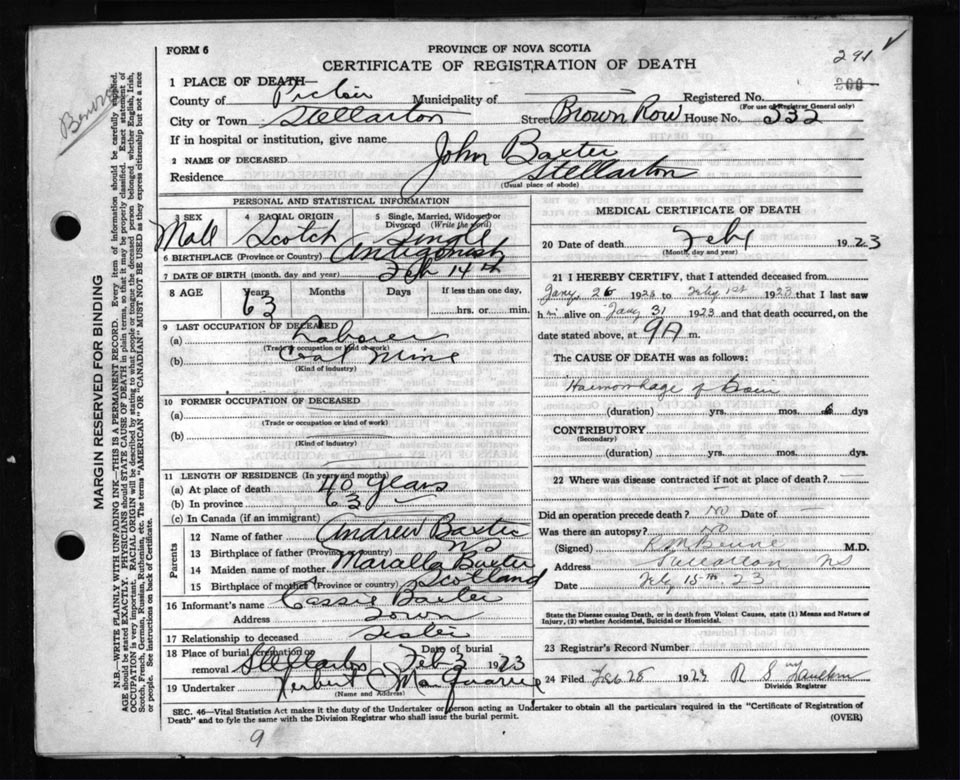 FORM 6
PROVINCE OF NOVA SCOTIA
CERTIFICATE OF REGISTRATION OF DEATH
291
200
1 PLACE OF DEATH—
County of Pictou Municipality of Registered No.
(For use of Registrar General only)
City or Town Stellarton Street Brown Row House No. 332
If in hospital or institution, give name
2 NAME OF DECEASED John Baxter
Residence Stellarton
(Usual place of abode)
PERSONAL AND STATISTICAL INFORMATION
3 SEX 4 RACIAL ORIGIN 5 Single, Married, Widowed or Divorced (Write the word)
Male Scotch Single
6 BIRTHPLACE (Province or Country) Antigonish
7 DATE OF BIRTH (month, day and year) Feb 14th
8 AGE Years Months Days If less than one day,
63 hrs. or min.
9 LAST OCCUPATION OF DECEASED
(a) Laborer
(Trade occupation or kind of work)
(b) Coal Mine
(Kind of industry)
10 FORMER OCCUPATION OF DECEASED
(a)
(Trade or occupation or kind of work)
(b)
(Kind of industry)
11 LENGTH OF RESIDENCE (In years and months)
(a) At place of death 40 years
(b) In province 63
(c) In Canada (if an immigrant)
Parents
12 Name of father Andrew Baxter
13 Birthplace of father (Province or country) NS
14 Maiden name of mother Baxter
15 Birthplace of mother (Province or country) Scotland
16 Informant's name Cassie Baxter
Address Town
17 Relationship to deceased Sister
18 Place of burial, cremation or removal Stellarton Date of burial Feb 3 1923
19 Undertaker Herbert C MacQuarrie
(Name and Address)
MEDICAL CERTIFICATE OF DEATH
20 Date of death Feb 1 1923
(Month, day and year)
21 I HEREBY CERTIFY, that I attended deceased from
Jany 26 1923 to Feby 1st 1923 that I last saw
him alive on Jany 31 1923 and that death occurred, on the
date stated above, at 9A m.
The CAUSE OF DEATH was as follows:
Haemorrhage of Brain
(duration) yrs. mos. 6 dys
CONTRIBUTORY
(Secondary)
(duration) yrs. mos. dys.
22 Where was disease contracted if not at place of death?
Did an operation precede death? No Date of
Was there an autopsy? No
(Signed) M.D.
Address Stellarton NS
Date Feby 15th 23
State the Disease causing Death, or in death from Violent Causes, state (1) Means and Nature of
Injury, (2) whether Accidental, Suicidal or Homicidal.
23 Registrar's Record Number
24 Filed Feb 28 1923 R S
Division Registrar
SEC. 46—Vital Statistics Act makes it the duty of the Undertaker or person acting as Undertaker to obtain all the particulars required in the "Certificate of Registration of
Death" and to fyle the same with the Division Registrar who shall issue the burial permit.
(OVER)
9
MARGIN RESERVED FOR BINDING
N.B.—WRITE PLAINLY WITH UNFADING INK—THIS IS A PERMANENT RECORD. Every item of information should be carefully supplied.
AGE should be stated EXACTLY. PHYSICIANS should STATE CAUSE OF DEATH in plain terms, so that it may be properly classified. Exact statement of
OCCUPATION is very important. RACIAL ORIGIN will be described by stating to what people or tongue the deceased person belonged whether English, Irish,
Scotch, French, German, Russian, Ruthenian, etc. The terms "AMERICAN" OR "CANADIAN" MUST NOT BE USED as they express citizenship but not a race
or people. See instructions on back of Certificate.